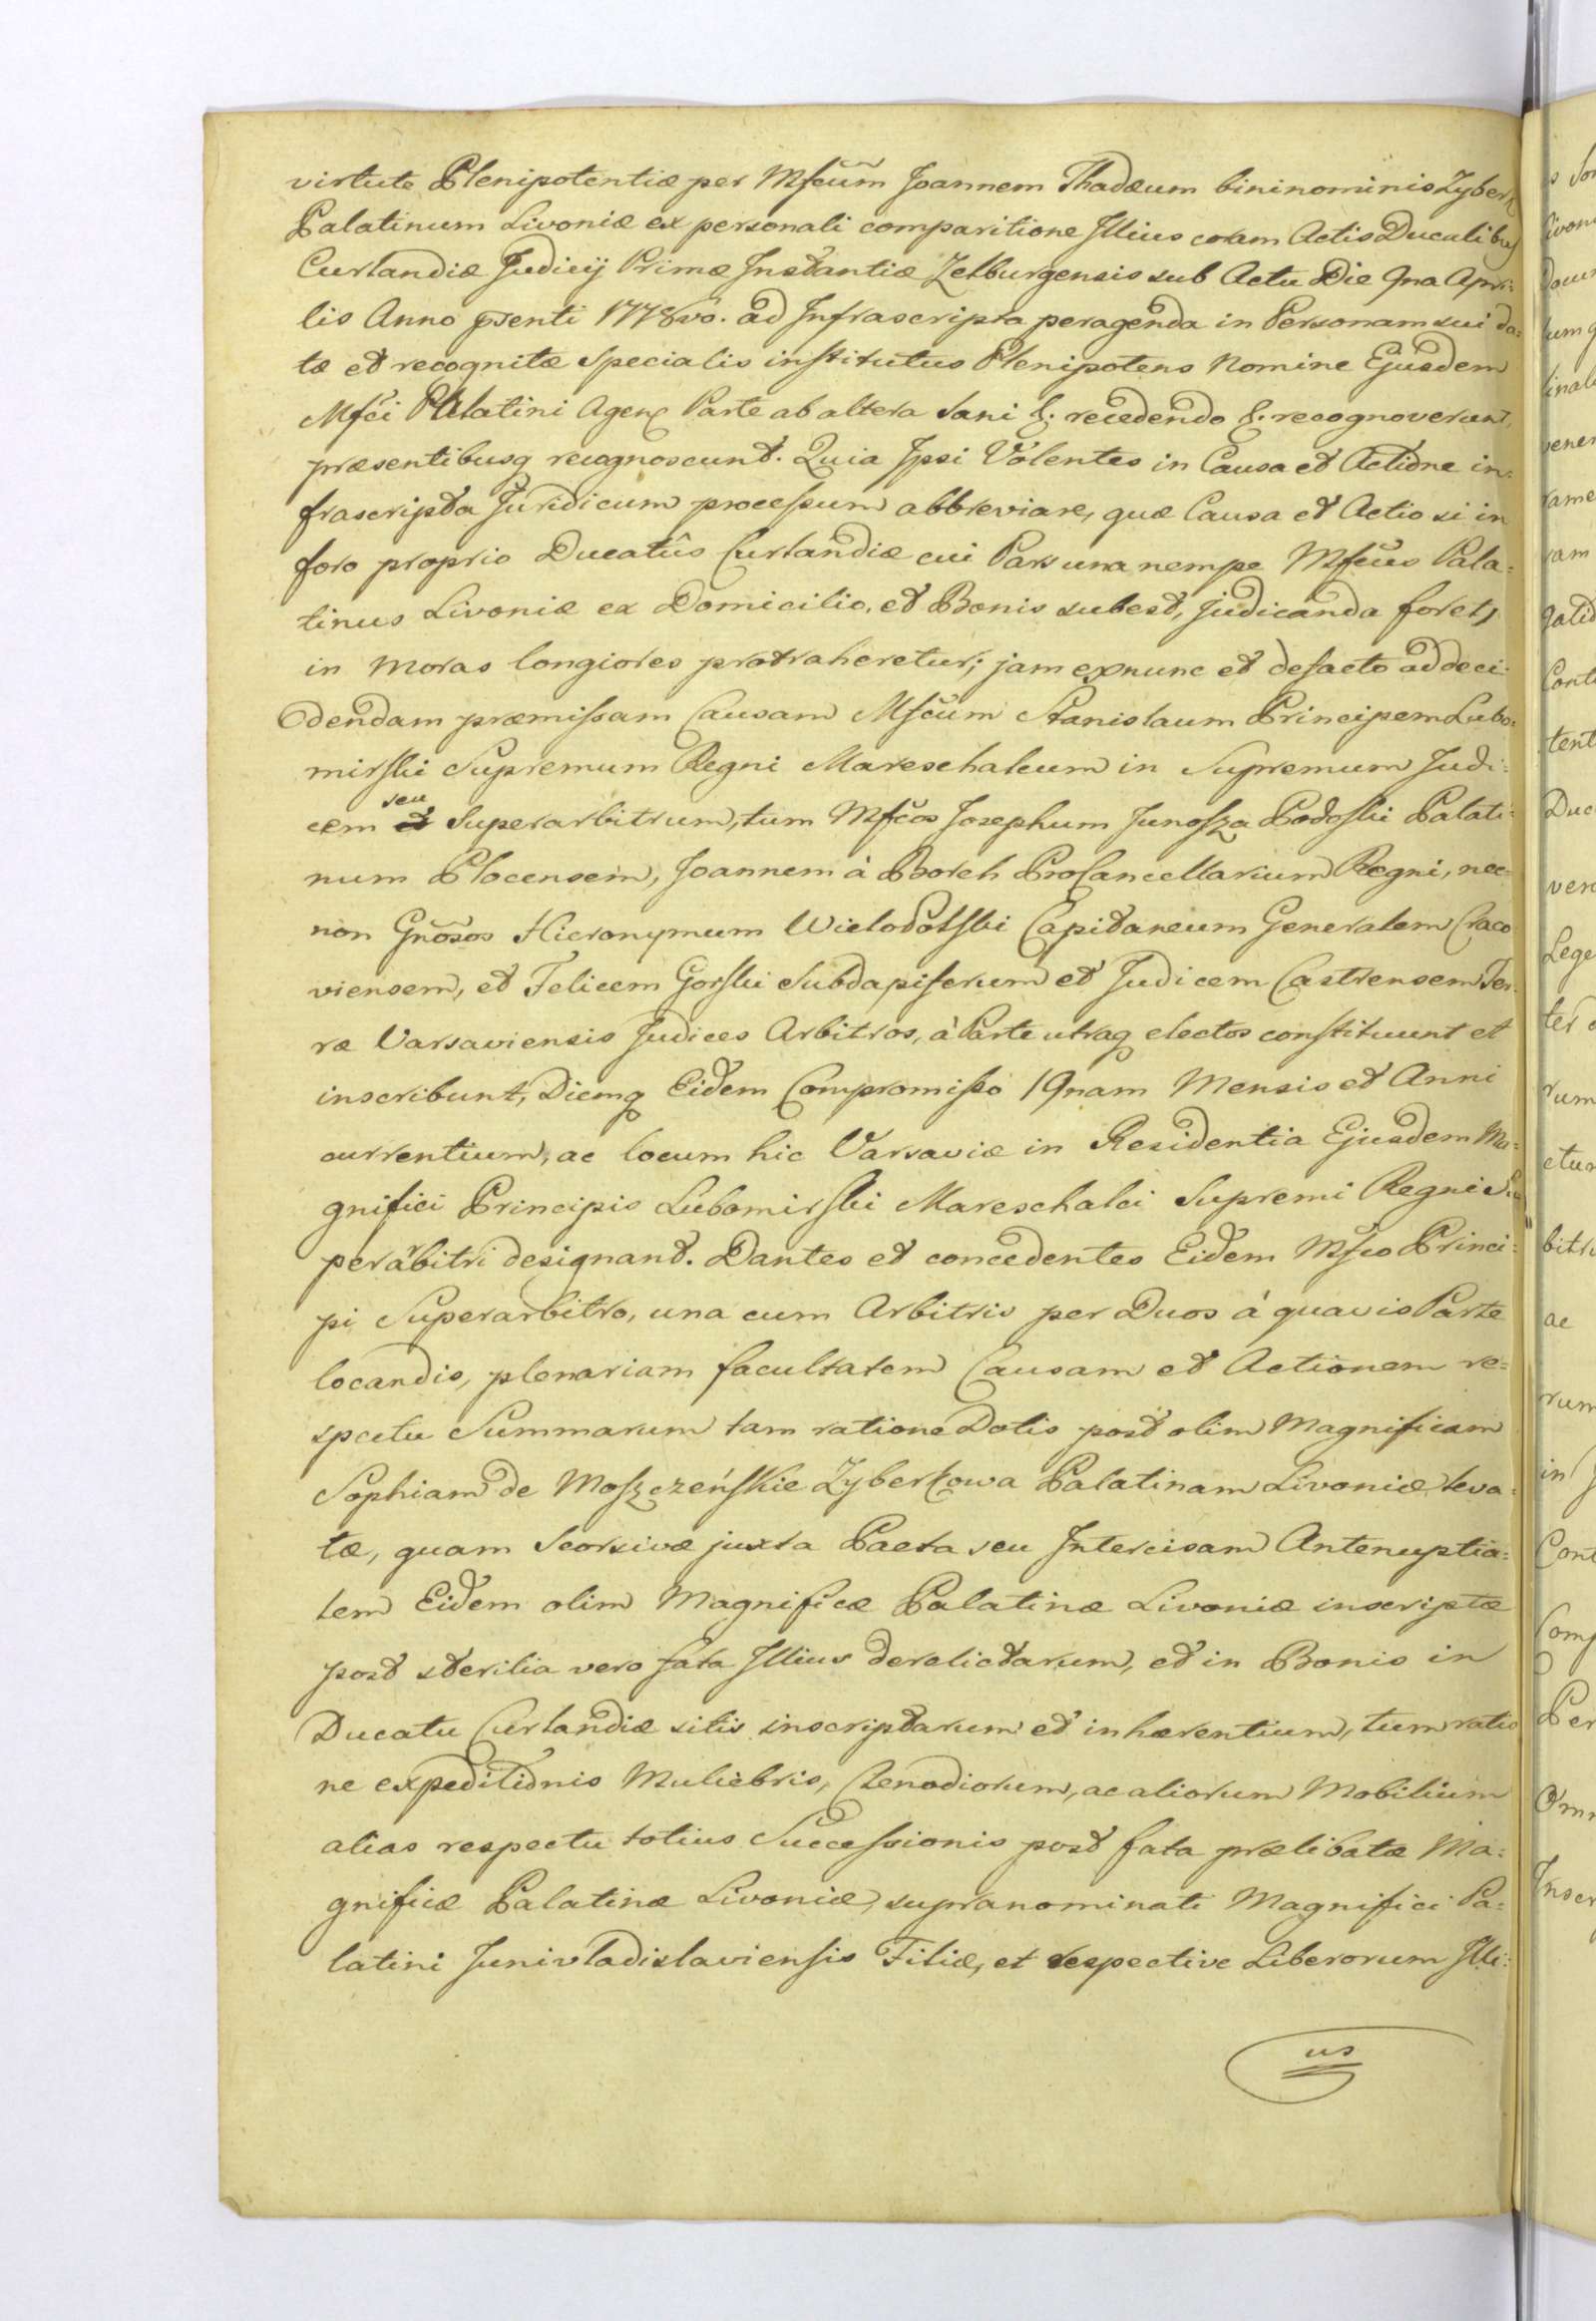 virtute Plenipotentiæ per Mfcum Joannem Thadæum bininominis Zyberk
Palatinum Livoniæ ex personali comparitione Illius coram Actis Ducalibus
Curlandiæ Judicij Primæ Instantiæ Zelburgensis sub Actu Die 9na Apri:
lis Anno psenti 1778vo. ad Infrascripta peragenda in Personam sui da:
tæ et recognitæ specialis institutus Plenipotens Nomine Ejusdem
Mfci Palatini Agens Parte ab altera sani &. recedendo &. recognoverunt,
præsentibusq recognoscunt. Quia Ipsi Volentes in Causa et Actione in:
frascripta Juridicum processum abbreviare, quæ Causa et Actio si in
foro proprio Ducatûs Curlandiæ cui Pars una nempe Mfcus Pala:
tinus Livoniæ ex Domicilio, et Bonis subest, judicanda foret,
in moras longiores protraheretur; jam exnunc et defacto ad deci:
dendam præmissam Causam Mfcum Stanislaum Principem Lubo:
mirski Supremum Regni Mareschalcum in Supremum Judi:
cem seu Superarbitrum, tum Mfcos Josephum Junosza Podoski Palati:
num Plocensem, Joannem à Borch ProCancellarium Regni, nec:
non Gnosos Hieronymum Wielopolski Capitaneum Generalem Craco
viensem, et Felicem Gorski Subdapiferum et Judicem Castrensem Ter:
ræ Varsaviensis Judices Arbitros, à Parte utraq electos constituunt et
inscribunt, Diemq Eidem Compromisso 19nam Mensis et Anni
currentium, ac locum hic Varsaviæ in Residentia Ejusdem Ma:
gnifici Principis Lubomirski Mareschalci Supremi Regni Su
perarbitri designant. Dantes et concedentes Eidem Mfco Princi:
pi Superarbitro, una cum Arbitris per Duos à quavis Parte
locandis, plenariam facultatem Causam et Actionem re=
spectu Summarum tam ratione Dotis post olim Magnificam
Sophiam de Moszczeńskie Zyberkowa Palatinam Livoniæ leva:
tæ, quam seorsivæ juxta Pacta seu Intercisam Antenuptia:
lem Eidem olim Magnificæ Palatinæ Livoniæ inscriptæ
post sterilia vero fata Illius derelictarum, et in Bonis in
Ducatu Curlandiæ sitis inscriptarum et inhærentium, tum ratio
ne expeditionis Muliebris, Clenodiorum, ac aliorum Mobilium
alias respectu totius Successionis post fata prælibatæ Ma:
gnificæ Palatinæ Livoniæ, supranominati Magnifici Pa:
latini Junivladislaviensis Filiæ, et respective Liberorum Illi:
us